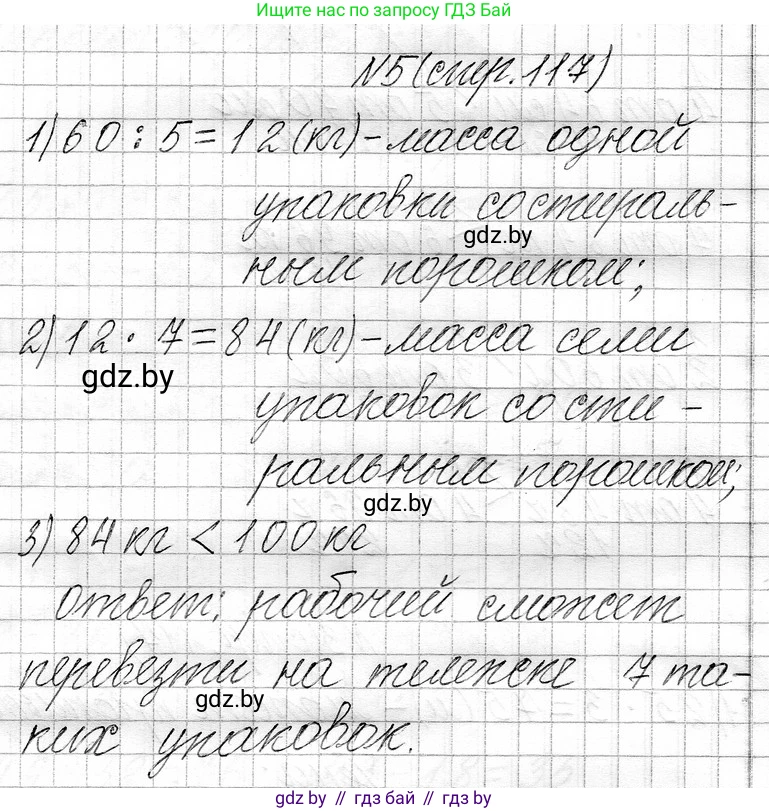 Ищите нас по запросу ГДЗ Бай
№5 (стр.117)
1) 60 : 5 = 12 (кг) - масса одной
упаковки со стираль-
gdz.by
ным порошком;
2) 12 · 7 = 84 (кг) - масса семи
gdz.by
упаковок со сти-
ральным порошком;
gdz.by
3) 84 кг < 100 кг
ответ: рабочий сможет
перевезти на тележке 7 та-
gdz.by
ких упаковок.
gdz.by // гдз бай // gdz.by